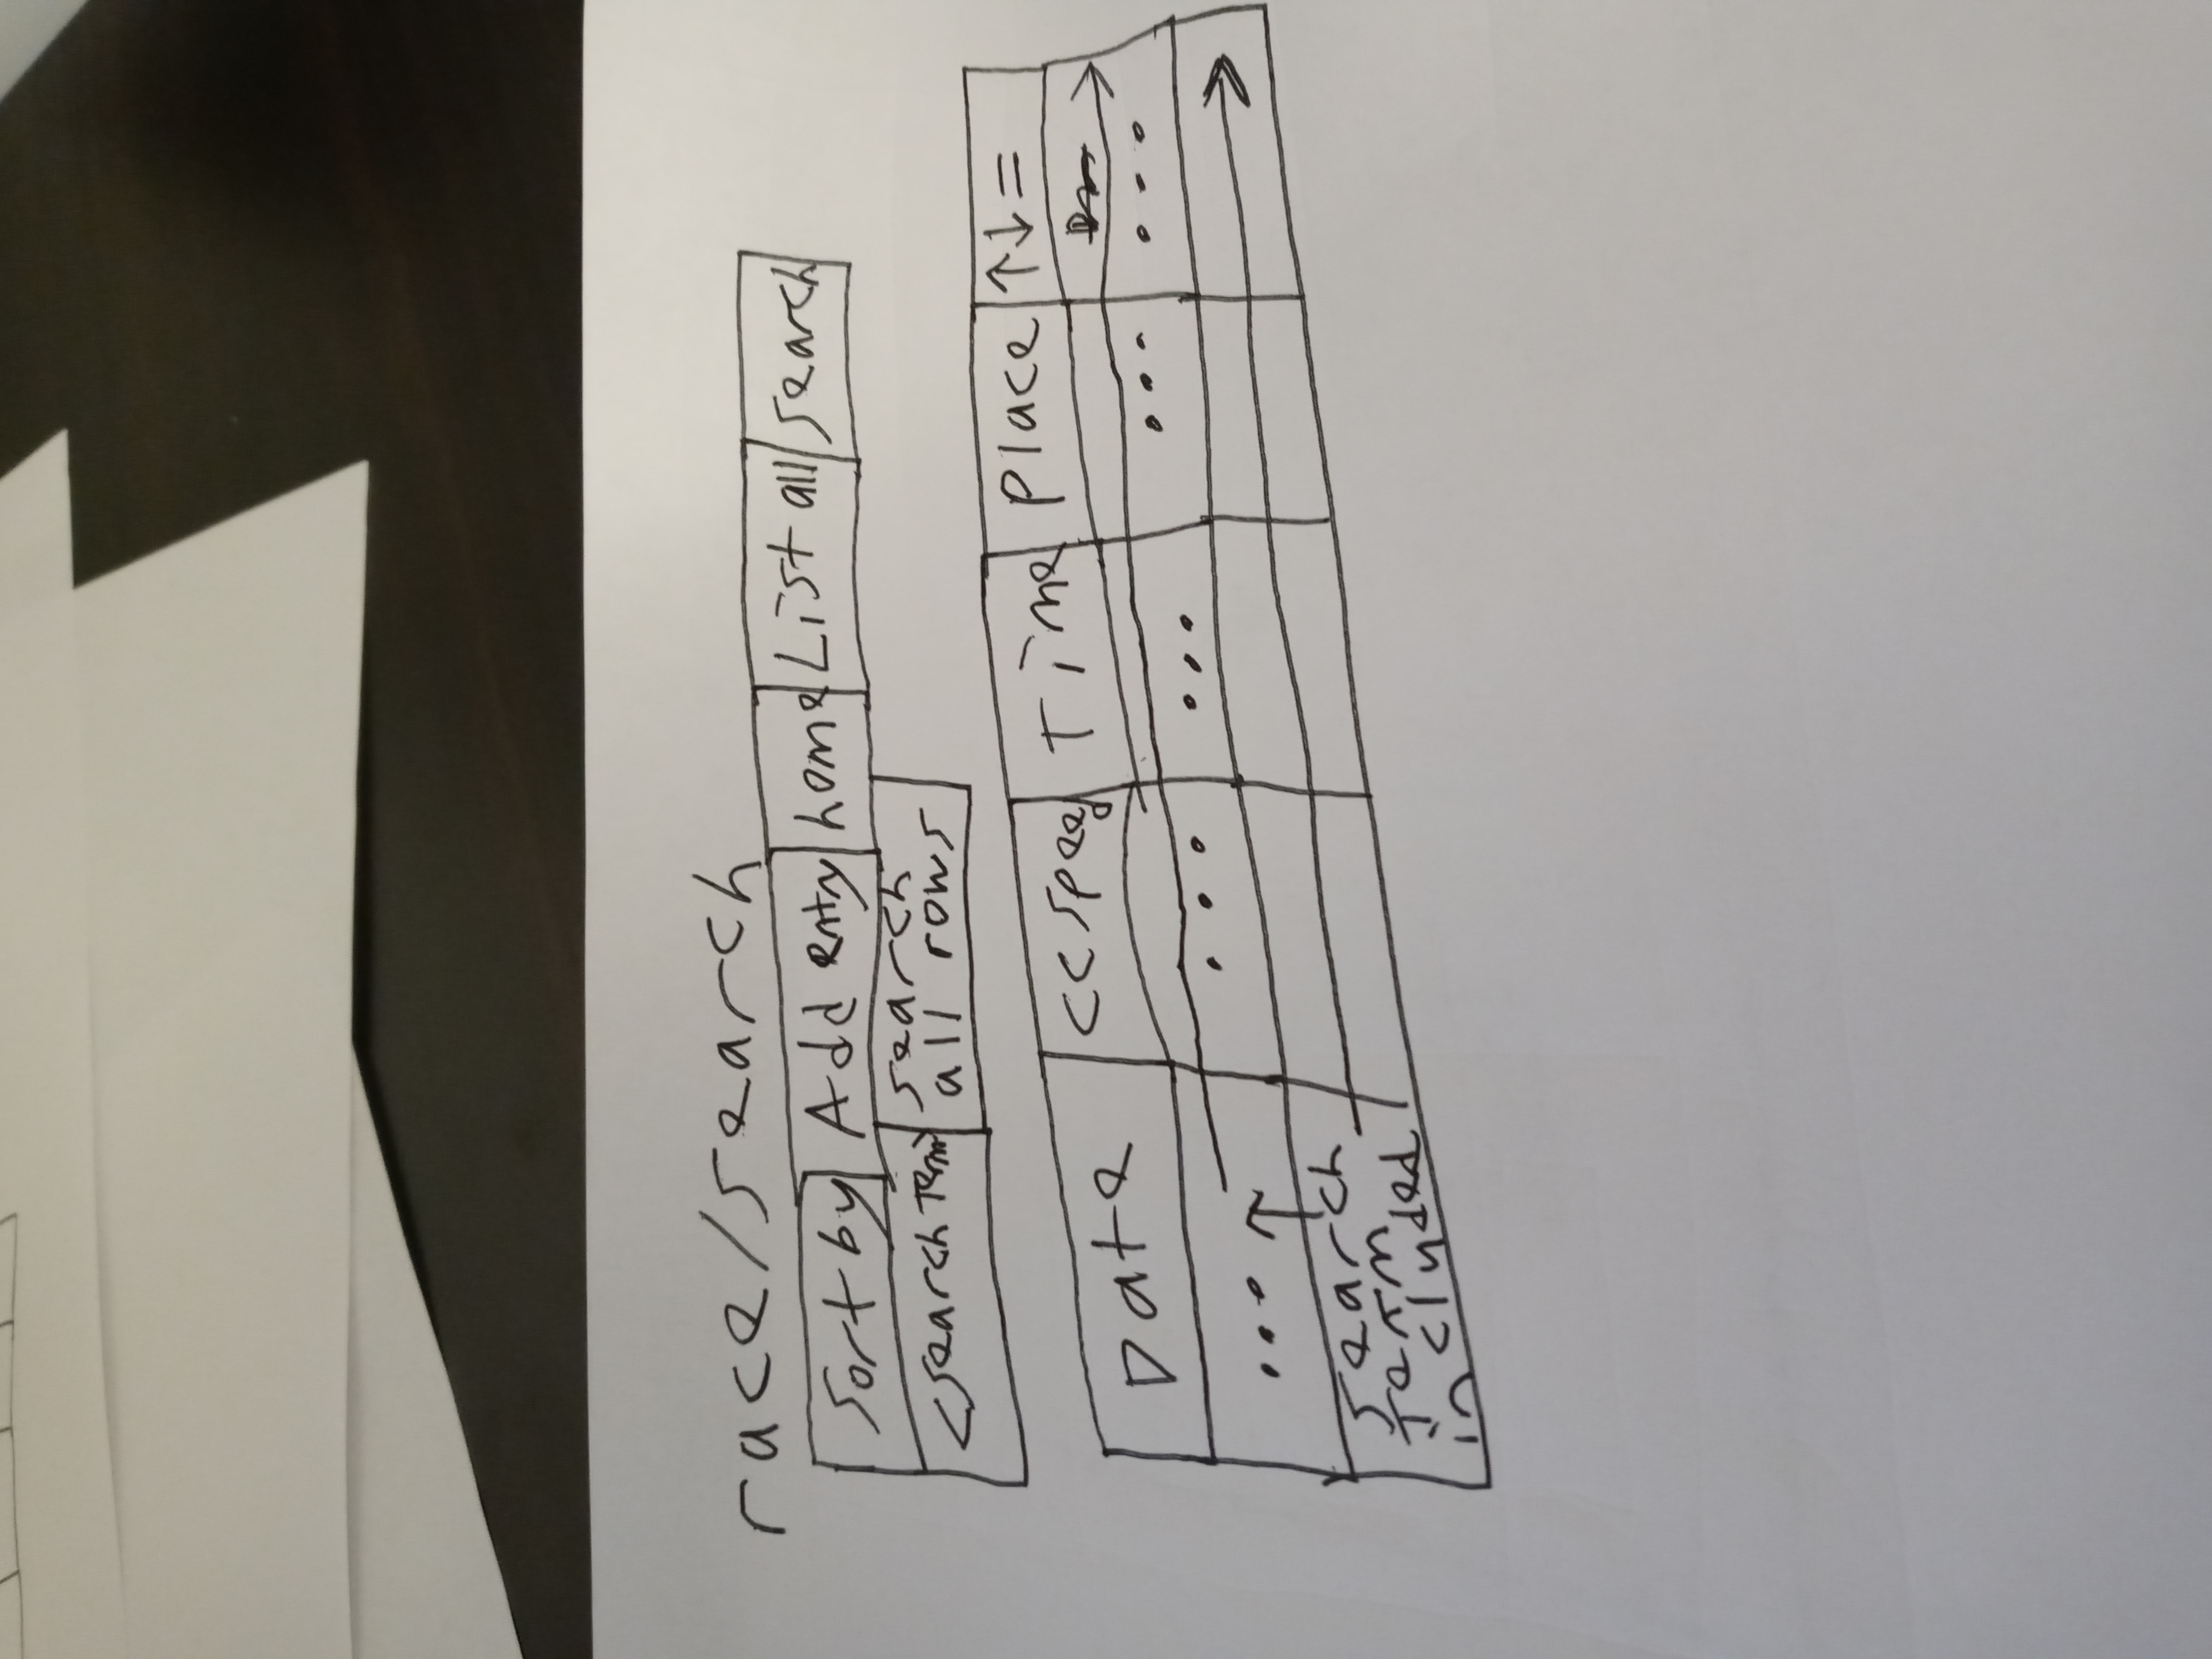 race/search
Sort by Add entry home List all search
<search Term search
all rows
Date CC Speed Time Place ↑↓=
... ↑ ... ... ... ...
search
term
included